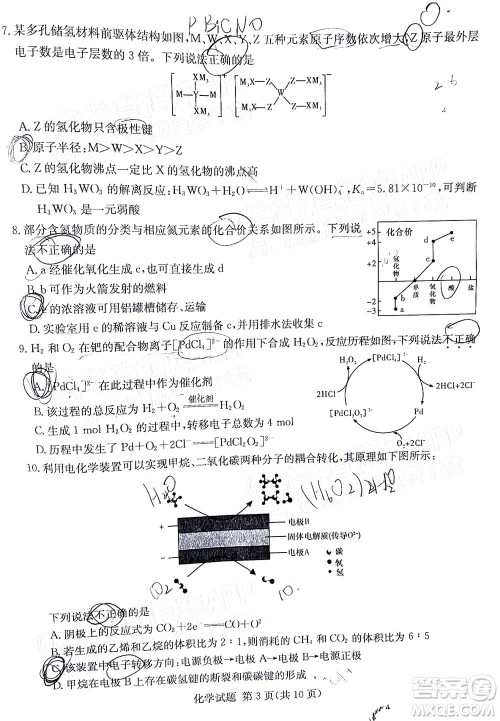 P B C N O
7. 某多孔储氢材料前驱体结构如图,M、W、X、Y、Z五种元素原子序数依次增大,Z原子最外层
电子数是电子层数的3倍。下列说法正确的是
XM₃ M₃X—Z Z—XM₃
M—Y—M W
XM₃ M₃X—Z Z—XM₃
A. Z的氢化物只含极性键
B. 原子半径:M>W>X>Y>Z
C. Z的氢化物沸点一定比X的氢化物沸点高
D. 已知H₃WO₃的解离反应:H₃WO₃+H₂O⇌H⁺+W(OH)₄⁻,Kₐ=5.81×10⁻¹⁰,可判断
H₃WO₃是一元弱酸
8. 部分含氮物质的分类与相应氮元素的化合价关系如图所示。下列说
法不正确的是
化合价
+5
+4
+2
0
-2
-3
a b c d e
氢化物 单质 酸 盐
A. a经催化氧化生成c,也可直接生成d
B. b可作为火箭发射的燃料
C. e的浓溶液可用铝罐槽储存、运输
D. 实验室用e的稀溶液与Cu反应制备c,并用排水法收集c
9. H₂和O₂在钯的配合物离子[PdCl₄]²⁻的作用下合成H₂O₂,反应历程如图,下列说法不正确
的是
A. [PdCl₄]²⁻在此过程中作催化剂
B. 该过程的总反应为H₂+O₂ 催化剂 H₂O₂
C. 生成1 mol H₂O₂的过程中,转移电子总数为4 mol
D. 历程中发生了Pd+O₂+2Cl⁻
H₂O₂ [PdCl₄]²⁻ H₂
2HCl 2HCl+2Cl⁻
Pd
O₂+2Cl⁻
10. 利用电化学装置可以实现甲烷、二氧化碳两种分子的耦合转化,其原理如下图所示:
H₂O
+
-
电极B
固体电解质(传导O²⁻)
电极A
碳
氧
氢
CO₂
下列说法不正确的是
A. 阴极上的反应式为CO₂+2e⁻═CO+O²⁻
B. 若生成的乙烯和乙烷的体积比为2∶1,则消耗的CH₄和CO₂的体积比为6∶5
C. 该装置中电子转移方向:电源负极→电极A→电极B→电源正极
化学试题 第3页(共10页)